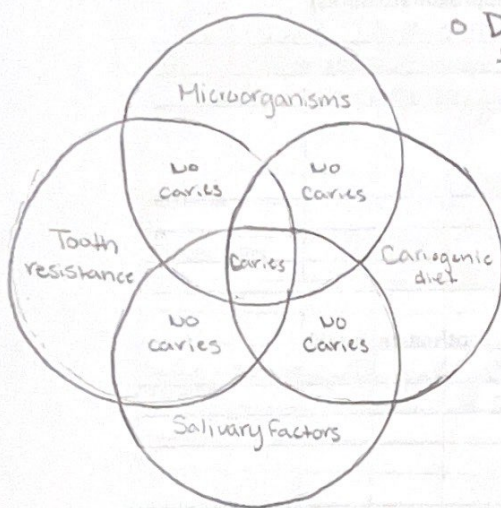 o D
Microorganisms
No
caries
No
caries
Tooth
resistance
Caries
Cariogenic
diet
No
caries
No
caries
Salivary factors